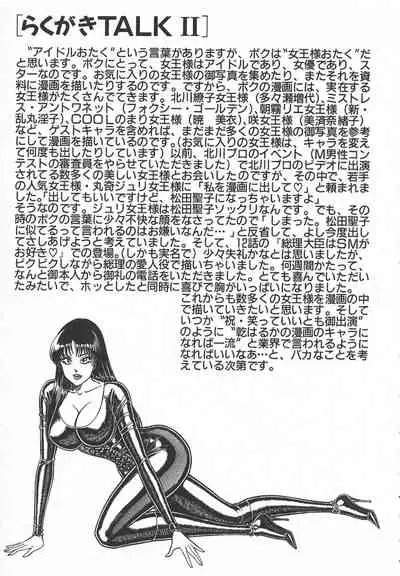 [らくがきTALK II]
“アイドルおたく”という言葉がありますが、ボクは“女王様おたく”だ
と思います。ボクにとって、女王様はアイドルであり、女優であり、ス
ターなのです。お気に入りの女王様の御写真を集めたり、またそれを資
料に漫画を描いたりするのです。ですから、ボクの漫画には、実在する
女王様がたくさんでてきます。北川繚子女王様（多々瀬増代）、ミストレ
ス・アントワネット（フォクシー・ゴールデン）、朝霧リエ女王様（新・
乱丸淫子）、COOLのまり女王様（暁 美衣）、咲女王様（美済奈緒子）
など、ゲストキャラを含めれば、まだまだ多くの女王様の御写真を参考
にして漫画を描いているのです。（お気に入りの女王様は、キャラを変え
て何度も出したりしています）以前、北川プロのイベント（M男性コン
テストの審査員をやらせてもらいました）で北川プロのビデオに出演
されてる数多くの美しい女王様とお会いしたのですが、その中で、若手
の人気女王様・丸奇ジュリ女王様に「私を漫画に出して♡」と頼まれま
した。「出してもいいですけど、松田聖子になっちゃいますよ」
そうなのです。ジュリ女王様は松田聖子ソックリなのです。でも、その
時のボクの言葉に少々不快な顔をなさってたのでした。しまった。松田聖子
に似てるって言われるのはお嫌いなんだ…」と反省して、よし今度出し
てさしあげようと考えていました。そして、12話の「総理大臣はSMが
お好き♡」での登場。（しかも実名で）少々失礼かなとは思いましたが、
ビクビクしながら総理の愛人役で描いちゃいました。何週間かたって、
なんと御本人から御礼の電話をいただきました。とても喜んでいただい
たみたいで、ホッとしたと同時に喜びで胸がいっぱいになりました。
これからも数多くの女王様を漫画の中
で描いていきたいと思います。そして
いつか“祝・笑っていいとも御出演”
のように“乾はるかの漫画のキャラに
なれば一流”と業界で言われるように
なればいいなあ…と、バカなことを考
えている次第です。